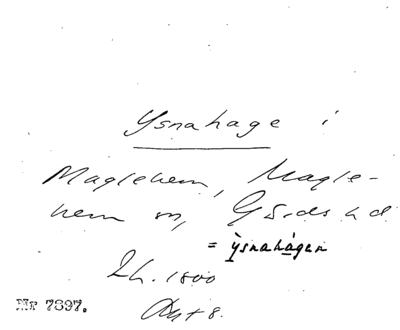 Ysnahage i
Maglehem, Magle-
hem sn, Gärds hd
= ysnahågen
Lh. 1800
Akt 8.
Nr 7897.